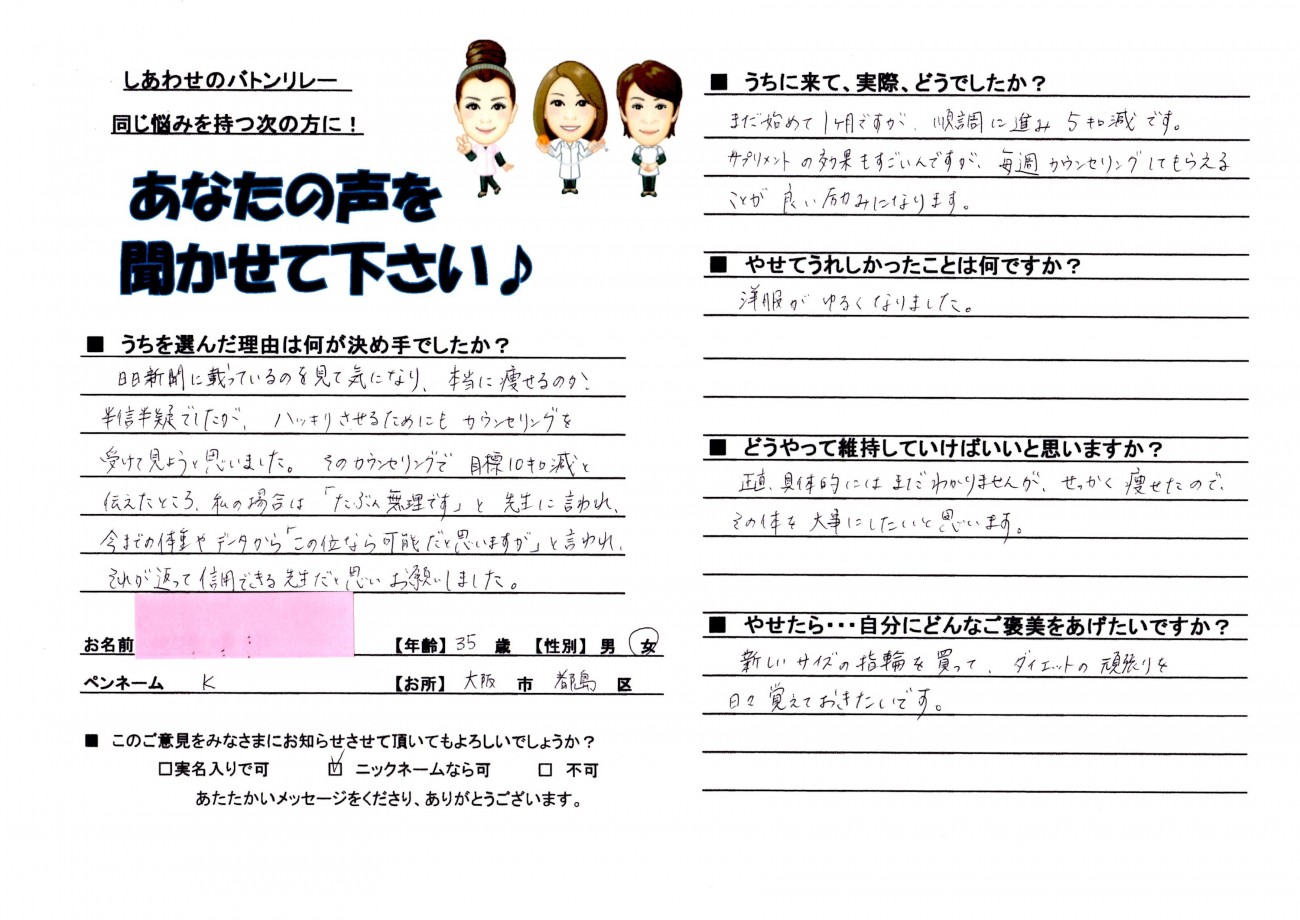 しあわせのバトンリレー
同じ悩みを持つ次の方に！
あなたの声を
聞かせて下さい♪
■ うちを選んだ理由は何が決め手でしたか？
日日新聞に載っているのを見て気になり、本当に痩せるのか?
半信半疑でしたが、ハッキリさせるためにもカウンセリングを
受けて見ようと思いました。そのカウンセリングで目標10キロ減と
伝えたところ、私の場合は「たぶん無理です」と先生に言われ、
今までの体重やデータから「この位なら可能だと思いますが」と言われ、
それが返って信用できる先生だと思いお願いしました。
お名前 【年齢】35 歳 【性別】男 女
ペンネーム K 【お所】大阪 市 都島 区
■ このご意見をみなさまにお知らせさせて頂いてもよろしいでしょうか？
□実名入りで可 ☑ ニックネームなら可 □ 不可
あたたかいメッセージをくださり、ありがとうございます。
■ うちに来て、実際、どうでしたか？
まだ始めて1ヶ月ですが、順調に進み5キロ減です。
サプリメントの効果もすごいんですが、毎週カウンセリングしてもらえる
ことが良い励みになります。
■ やせてうれしかったことは何ですか？
洋服がゆるくなりました。
■ どうやって維持していけばいいと思いますか？
正直、具体的にはまだわかりませんが、せっかく痩せたので、
その体を大事にしたいと思います。
■ やせたら・・・自分にどんなご褒美をあげたいですか？
新しいサイズの指輪を買って、ダイエットの頑張りを
日々覚えておきたいです。